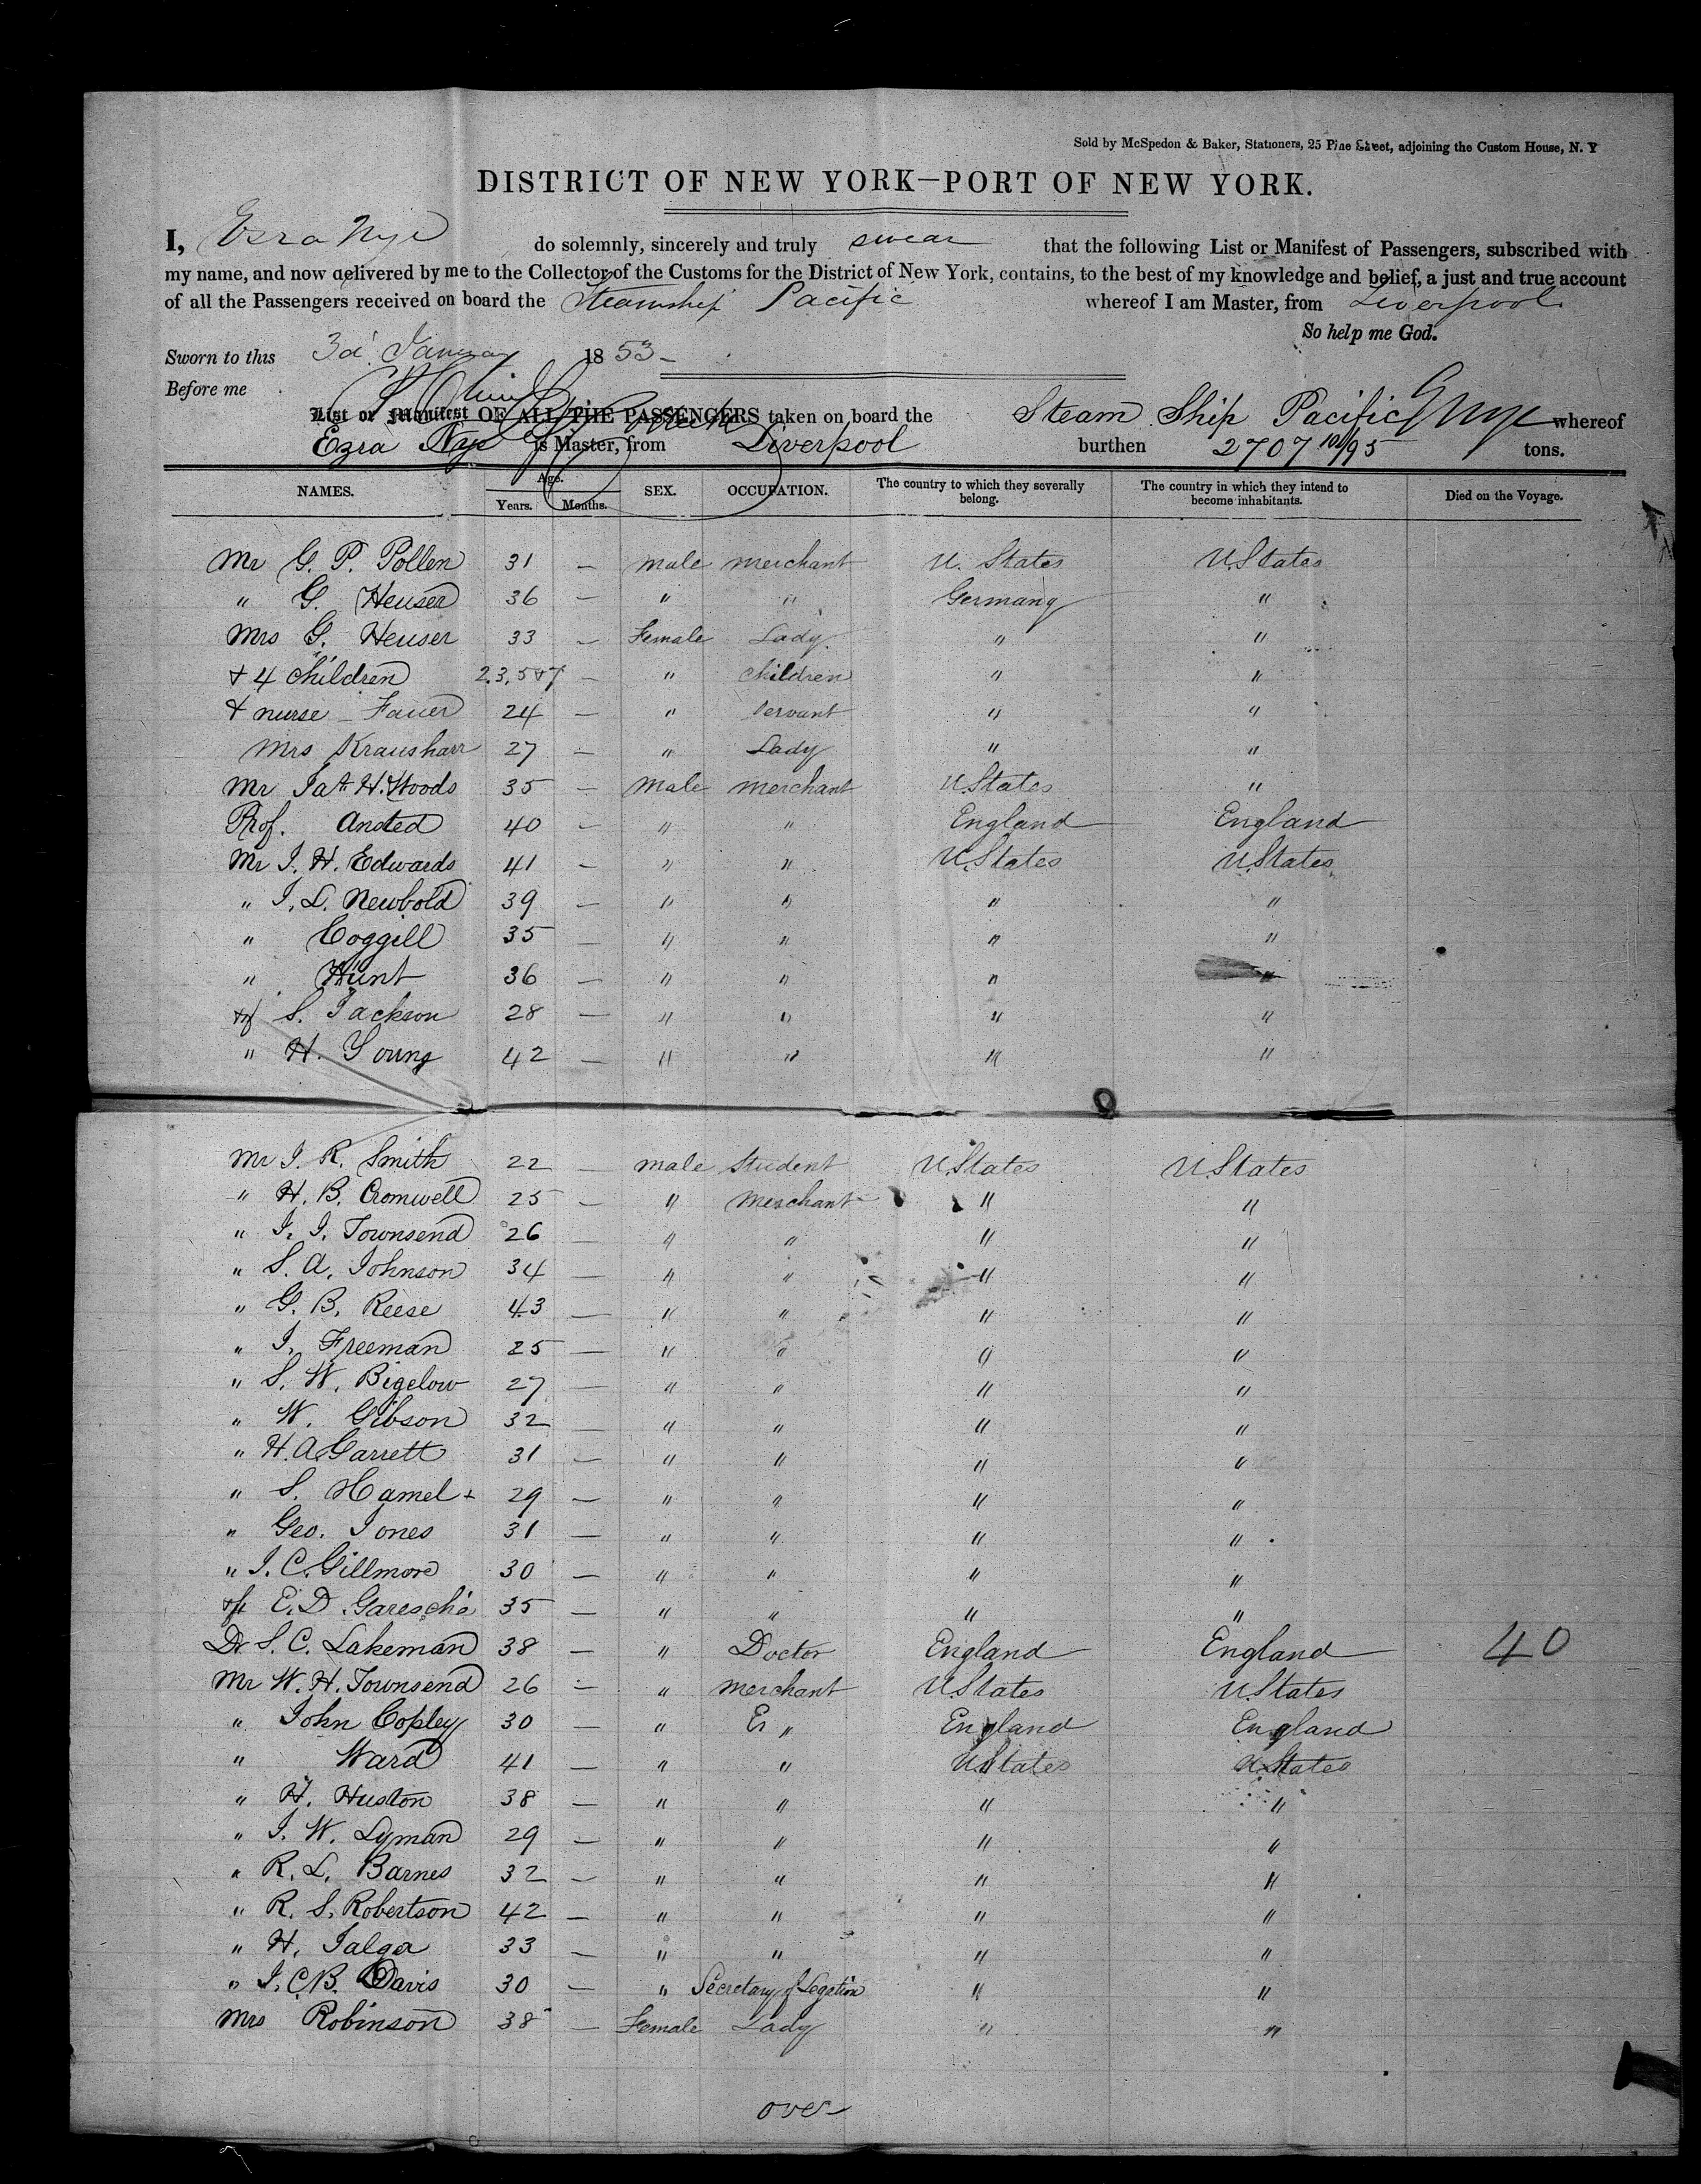 Sold by McSpedon & Baker, Stationers, 25 Pine Street, adjoining the Custom House, N. Y
DISTRICT OF NEW YORK—PORT OF NEW YORK.
I, Ezra Nye do solemnly, sincerely and truly swear that the following List or Manifest of Passengers, subscribed with
my name, and now delivered by me to the Collector of the Customs for the District of New York, contains, to the best of my knowledge and belief, a just and true account
of all the Passengers received on board the Steamship Pacific whereof I am Master, from Liverpool
So help me God.
Sworn to this 3d January 1853
Before me
List or Manifest OF ALL THE PASSENGERS taken on board the Steam Ship Pacific E Nye whereof
Ezra Nye is Master, from Liverpool burthen 2707 10/95 tons.
NAMES. Age. Years. Months. SEX. OCCUPATION. The country to which they severally belong. The country in which they intend to become inhabitants. Died on the Voyage.
Mr G. P. Pollen 31 — male merchant U. States U. States
" G. Heuser 36 — " " Germany "
Mrs G. Heuser 33 — Female Lady " "
+ 4 children 2.3.5+7 — " children " "
+ nurse - Fauer 24 — " Servant " "
Mrs Krausharr 27 — " Lady " "
Mr Jas H. Woods 35 — Male merchant U States "
Prof. Ansted 40 — " " England England
Mr J. H. Edwards 41 — " " U. States U. States
" J. L. Newbold 39 — " " " "
" Coggill 35 — " " " "
" Hunt 36 — " " " "
" S. Jackson 28 — " " " "
" H. Young 42 — " " " "
Mr J. R. Smith 22 — male Student U. States U. States
" H. B. Cromwell 25 — " Merchant " "
" J. J. Townsend 26 — " " " "
" S. A. Johnson 34 — " " " "
" G. B. Reese 43 — " " " "
" J. Freeman 25 — " " " "
" S. W. Bigelow 27 — " " " "
" W. Gibson 32 — " " " "
" H. A. Garrett 31 — " " " "
" S. Hamel + 29 — " " " "
" Geo. Jones 31 — " " " "
" J. C. Gillmore 30 — " " " "
" E. D. Garesché 35 — " " " "
Dr S. C. Lakeman 38 — " Doctor England England 40
Mr W. H. Townsend 26 — " merchant U. States U. States
" John Copley 30 — " " England England
" Ward 41 — " " U States U. States
" H. Huston 38 — " " " "
" J. W. Lyman 29 — " " " "
" R. L. Barnes 32 — " " " "
" R. S. Robertson 42 — " " " "
" H. 33 — " " " "
" J. C. B. Davis 30 — " Secretary of Legation " "
Mrs Robinson 38 — Female Lady " "
over